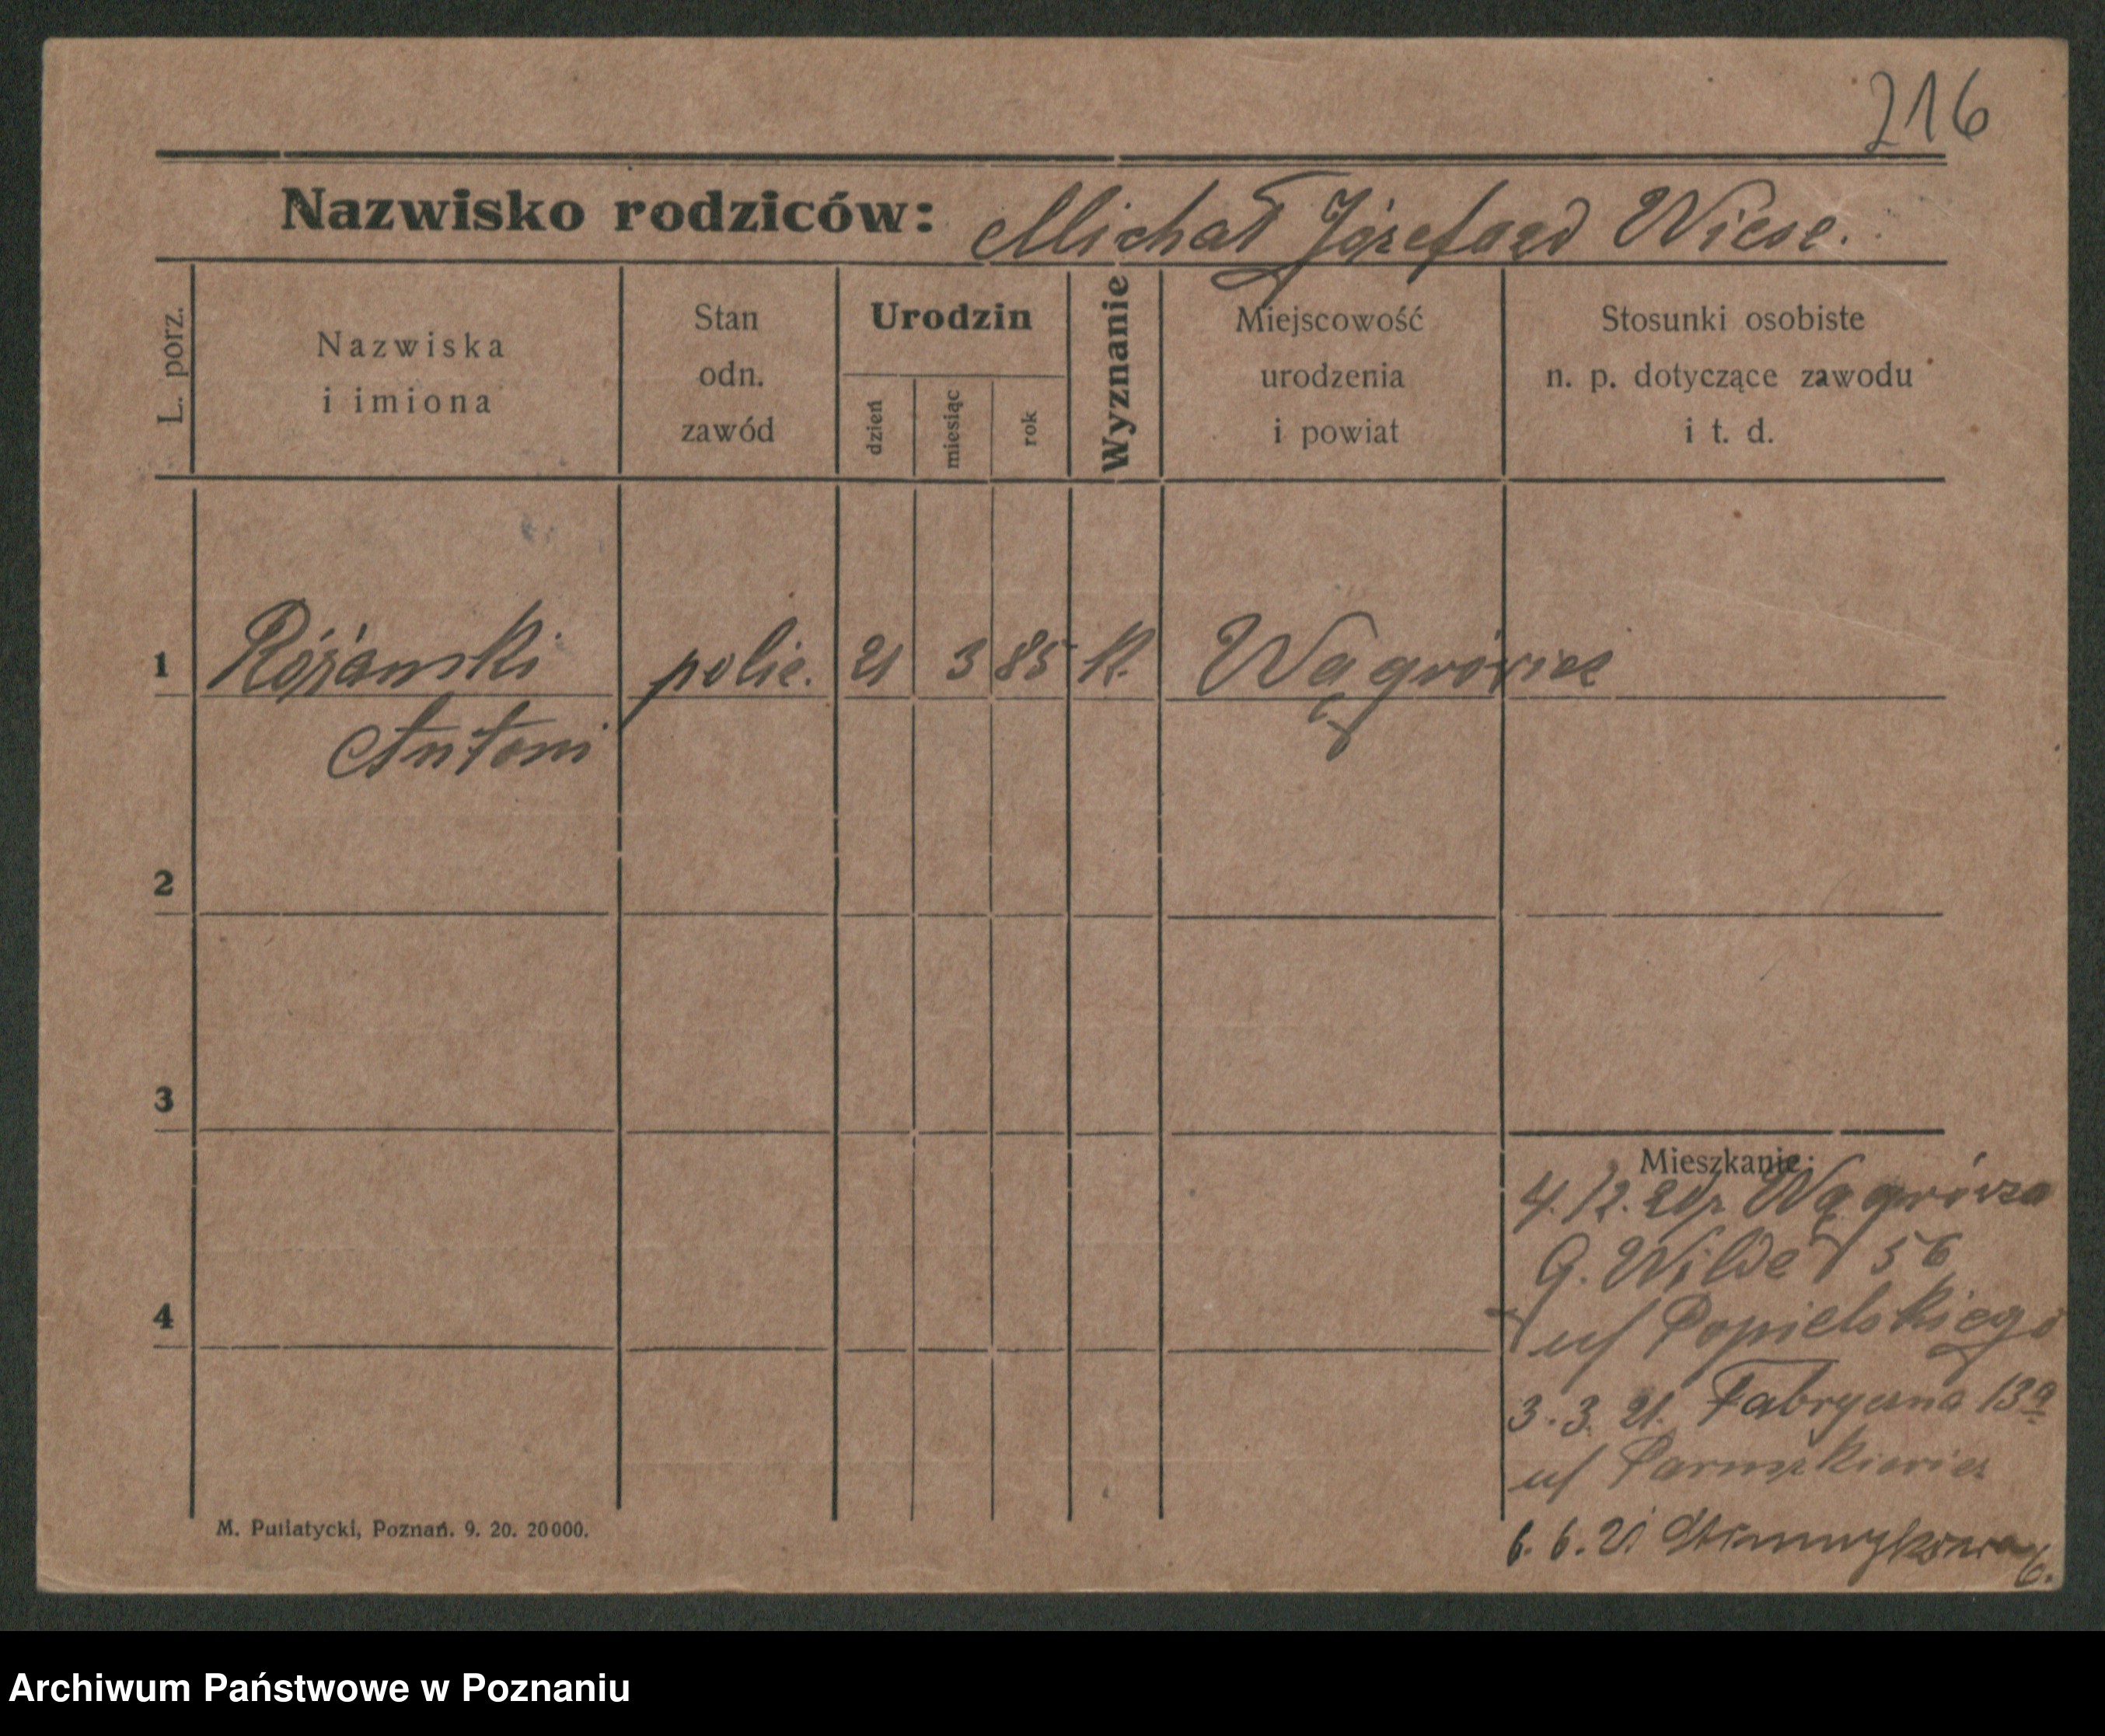 216
Nazwisko rodziców: Michał Józefa zd Wiese.
L. porz.
Nazwiska
i imiona
Stan
odn.
zawód
Urodzin
dzień
miesiąc
rok
Wyznanie
Miejscowość
urodzenia
i powiat
Stosunki osobiste
n. p. dotyczące zawodu
i t. d.
1 Różanski polic. 21 3 85 k. Wągrówiec
Antoni
2
3
4
Mieszkanie:
4.12. z Wągrówca
G. Wilde 56
u/ Popielskiego
3.3.21. Fabryczna 13a
u/
6.6.21 6.
M. Putiatycki, Poznań. 9. 20. 20000.
Archiwum Państwowe w Poznaniu